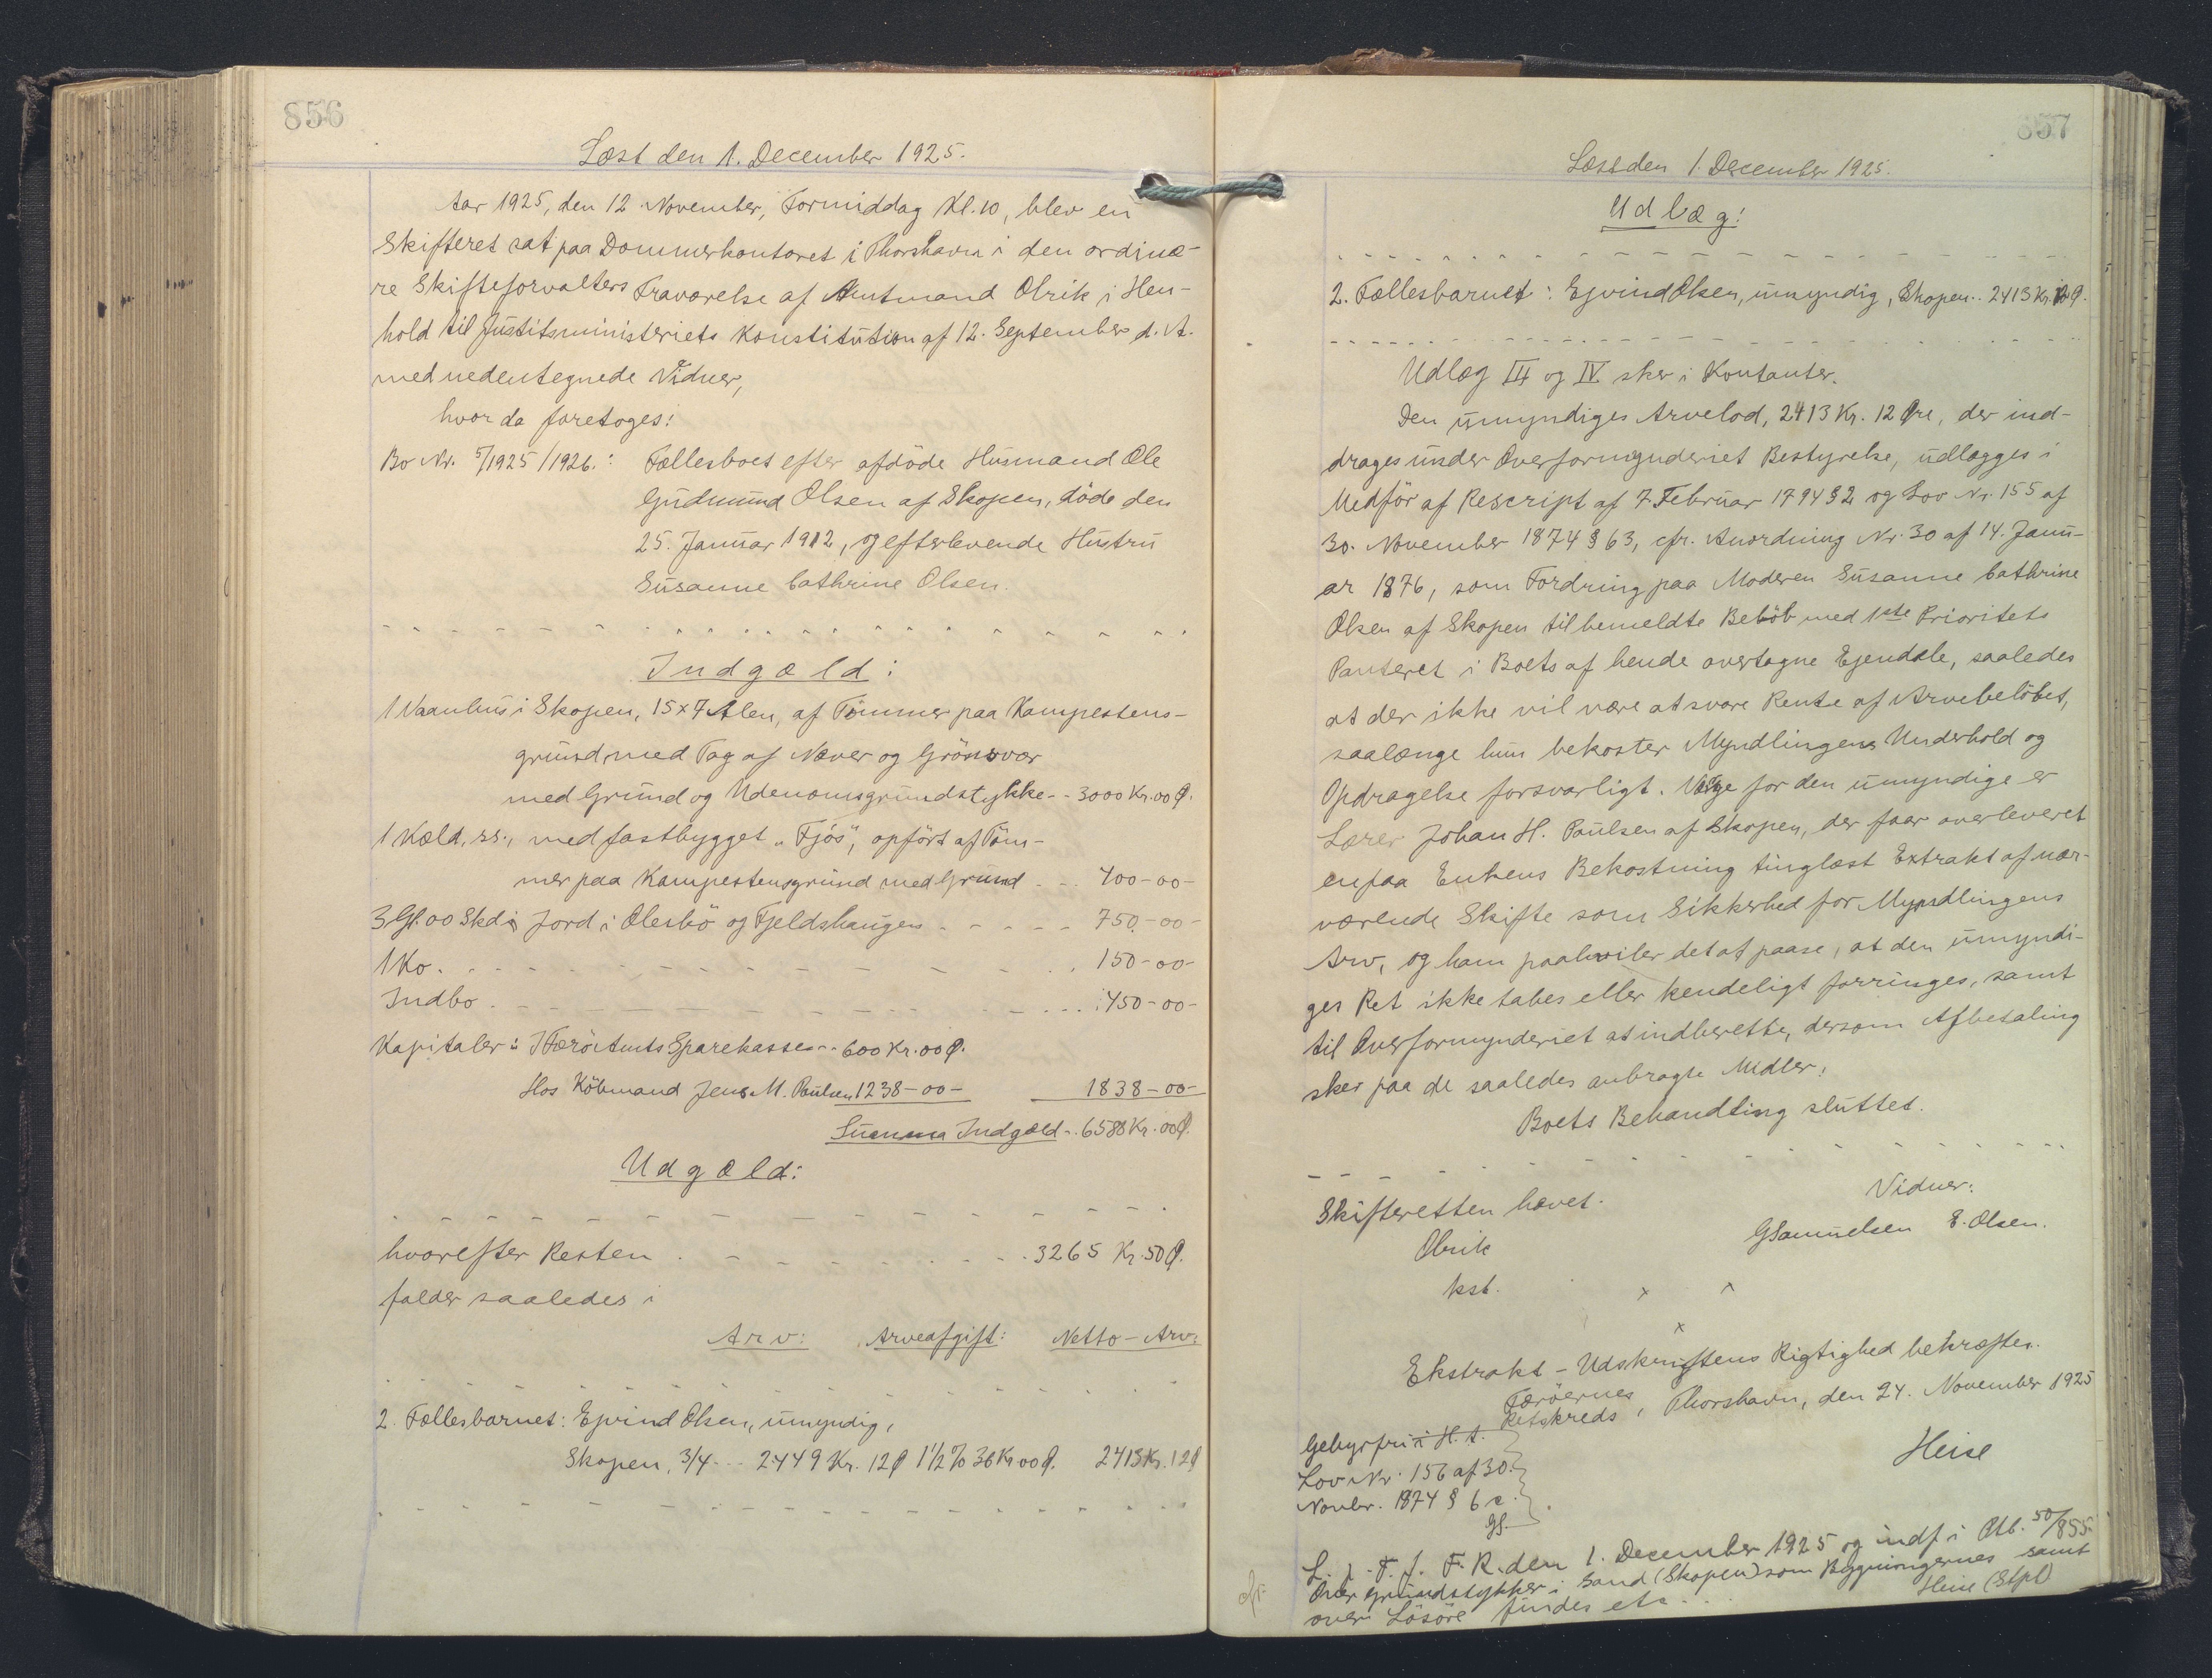 856
Læst den 1. December 1925.
Aar 1925, den 12 November, Formiddag Kl. 10, blev en
Skifteret sat paa Dommerkontoret i Thorshavn i den ordinæ-
re Skifteforvalters Fraværelse af Amtmand Olrik i Hen-
hold til Justitsministeriets Konstitution af 12. September d. A.
med nedentegnede Vidner,
hvor da foretoges:
Bo Nr. 5/1925/1926.: Fællesboet efter afdöde Husmand Ole
Gudmund Olsen af Skopen, döde den
25. Januar 1912, og efterlevende Hustru
Susanne Cathrine Olsen.
Indgæld:
1 Vaanhus i Skopen, 15x7 Alen, af Tömmer paa Kampestens-
grund med Tag af Næver og Grönsvær
med Grund og Udenomsgrundstykke - - 3000 Kr. 00 Ø.
1 Kæld. ss., med fastbygget "Fjós", opfört af Töm-
mer paa Kampestensgrund med Grund - - - 400-00-
3 Gl. 00 Skd i Jord i Olesbö og Fjeldshaugen - - - - - 750-00-
1 Ko. - - - - - - - - - - - - - 150-00-
Indbo. - - - - - - - - - - - - - 450-00-
Kapitaler: I Færö Amts Sparekasse - - 600 Kr. 00 Ø.
Hos Köbmand Jens M. Poulsen 1238-00- 1838-00-
Summa Indgæld - 6588 Kr. 00 Ø.
Udgæld:
hvorefter Resten - - - - - - - - 3265 Kr. 50 Ø.
falder saaledes i
Arv: Arveafgift: Netto-Arv:
2. Fællesbarnet: Ejvind Olsen, umyndig,
Skopen, 3/4 - - - 2449 Kr. 12 Ø 1 1/2 % 36 Kr 00 Ø. 2413 Kr. 12 Ø
857
Læst den 1. December 1925.
Udlæg:
2. Fællesbarnet: Ejvind Olsen, umyndig, Skopen - - 2413 Kr. 12 Ø.
Udlæg III og IV sker i Kontanter.
Den umyndiges Arvelod, 2413 Kr. 12 Øre, der ind-
drages under Overformynderiet Bestyrelse, udlægges i
Medför af Rescript af 7. Februar 1794 § 2 og Lov Nr. 155 af
30. November 1874 § 63, cfr. Anordning Nr. 30 af 14. Janu-
ar 1876, som Fordring paa Moderen Susanne Cathrine
Olsen af Skopen til bemeldte Belöb med 1ste Prioritets
Panteret i Boets af hende overtagne Ejendele, saaledes
at der ikke vil være at svare Rente af Arvebelöbet,
saalænge hun bekoster Myndlingens Underhold og
Opdragelse forsvarligt. Værge for den umyndige er
Lærer Johan H. Poulsen af Skopen, der faar overleveret
en paa Enkens Bekostning tinglæst Extrakt af nær-
værende Skifte som Sikkerhed for Myndlingens
Arv, og ham paahviler det at paase, at den umyndi-
ges Ret ikke tabes eller kendeligt forringes, samt
til Overformynderiet at indberette, dersom Afbetaling
sker paa de saaledes anbragte Midler.
Boets Behandling sluttet.
Skifteretten hævet.
Vidner:
Olrik
GSamuelsen E. Olsen.
kst.
Ekstrakt-Udskriftens Rigtighed bekræftes.
Færöernes
Retskreds, Thorshavn, den 24. November 1925
Heise
Gebyrfri i H. t.
Lov Nr. 156 af 30.
Novbr. 1874 § 6 c.
GS.
L. i. T. f. F. R. den 1. December 1925 og indf. i Ptb. 50/855
Over Grundstykker i Sand (Skopen) som Bygningernes samt
over Lösöre findes etc...
Heise (Stpl)
cfr.